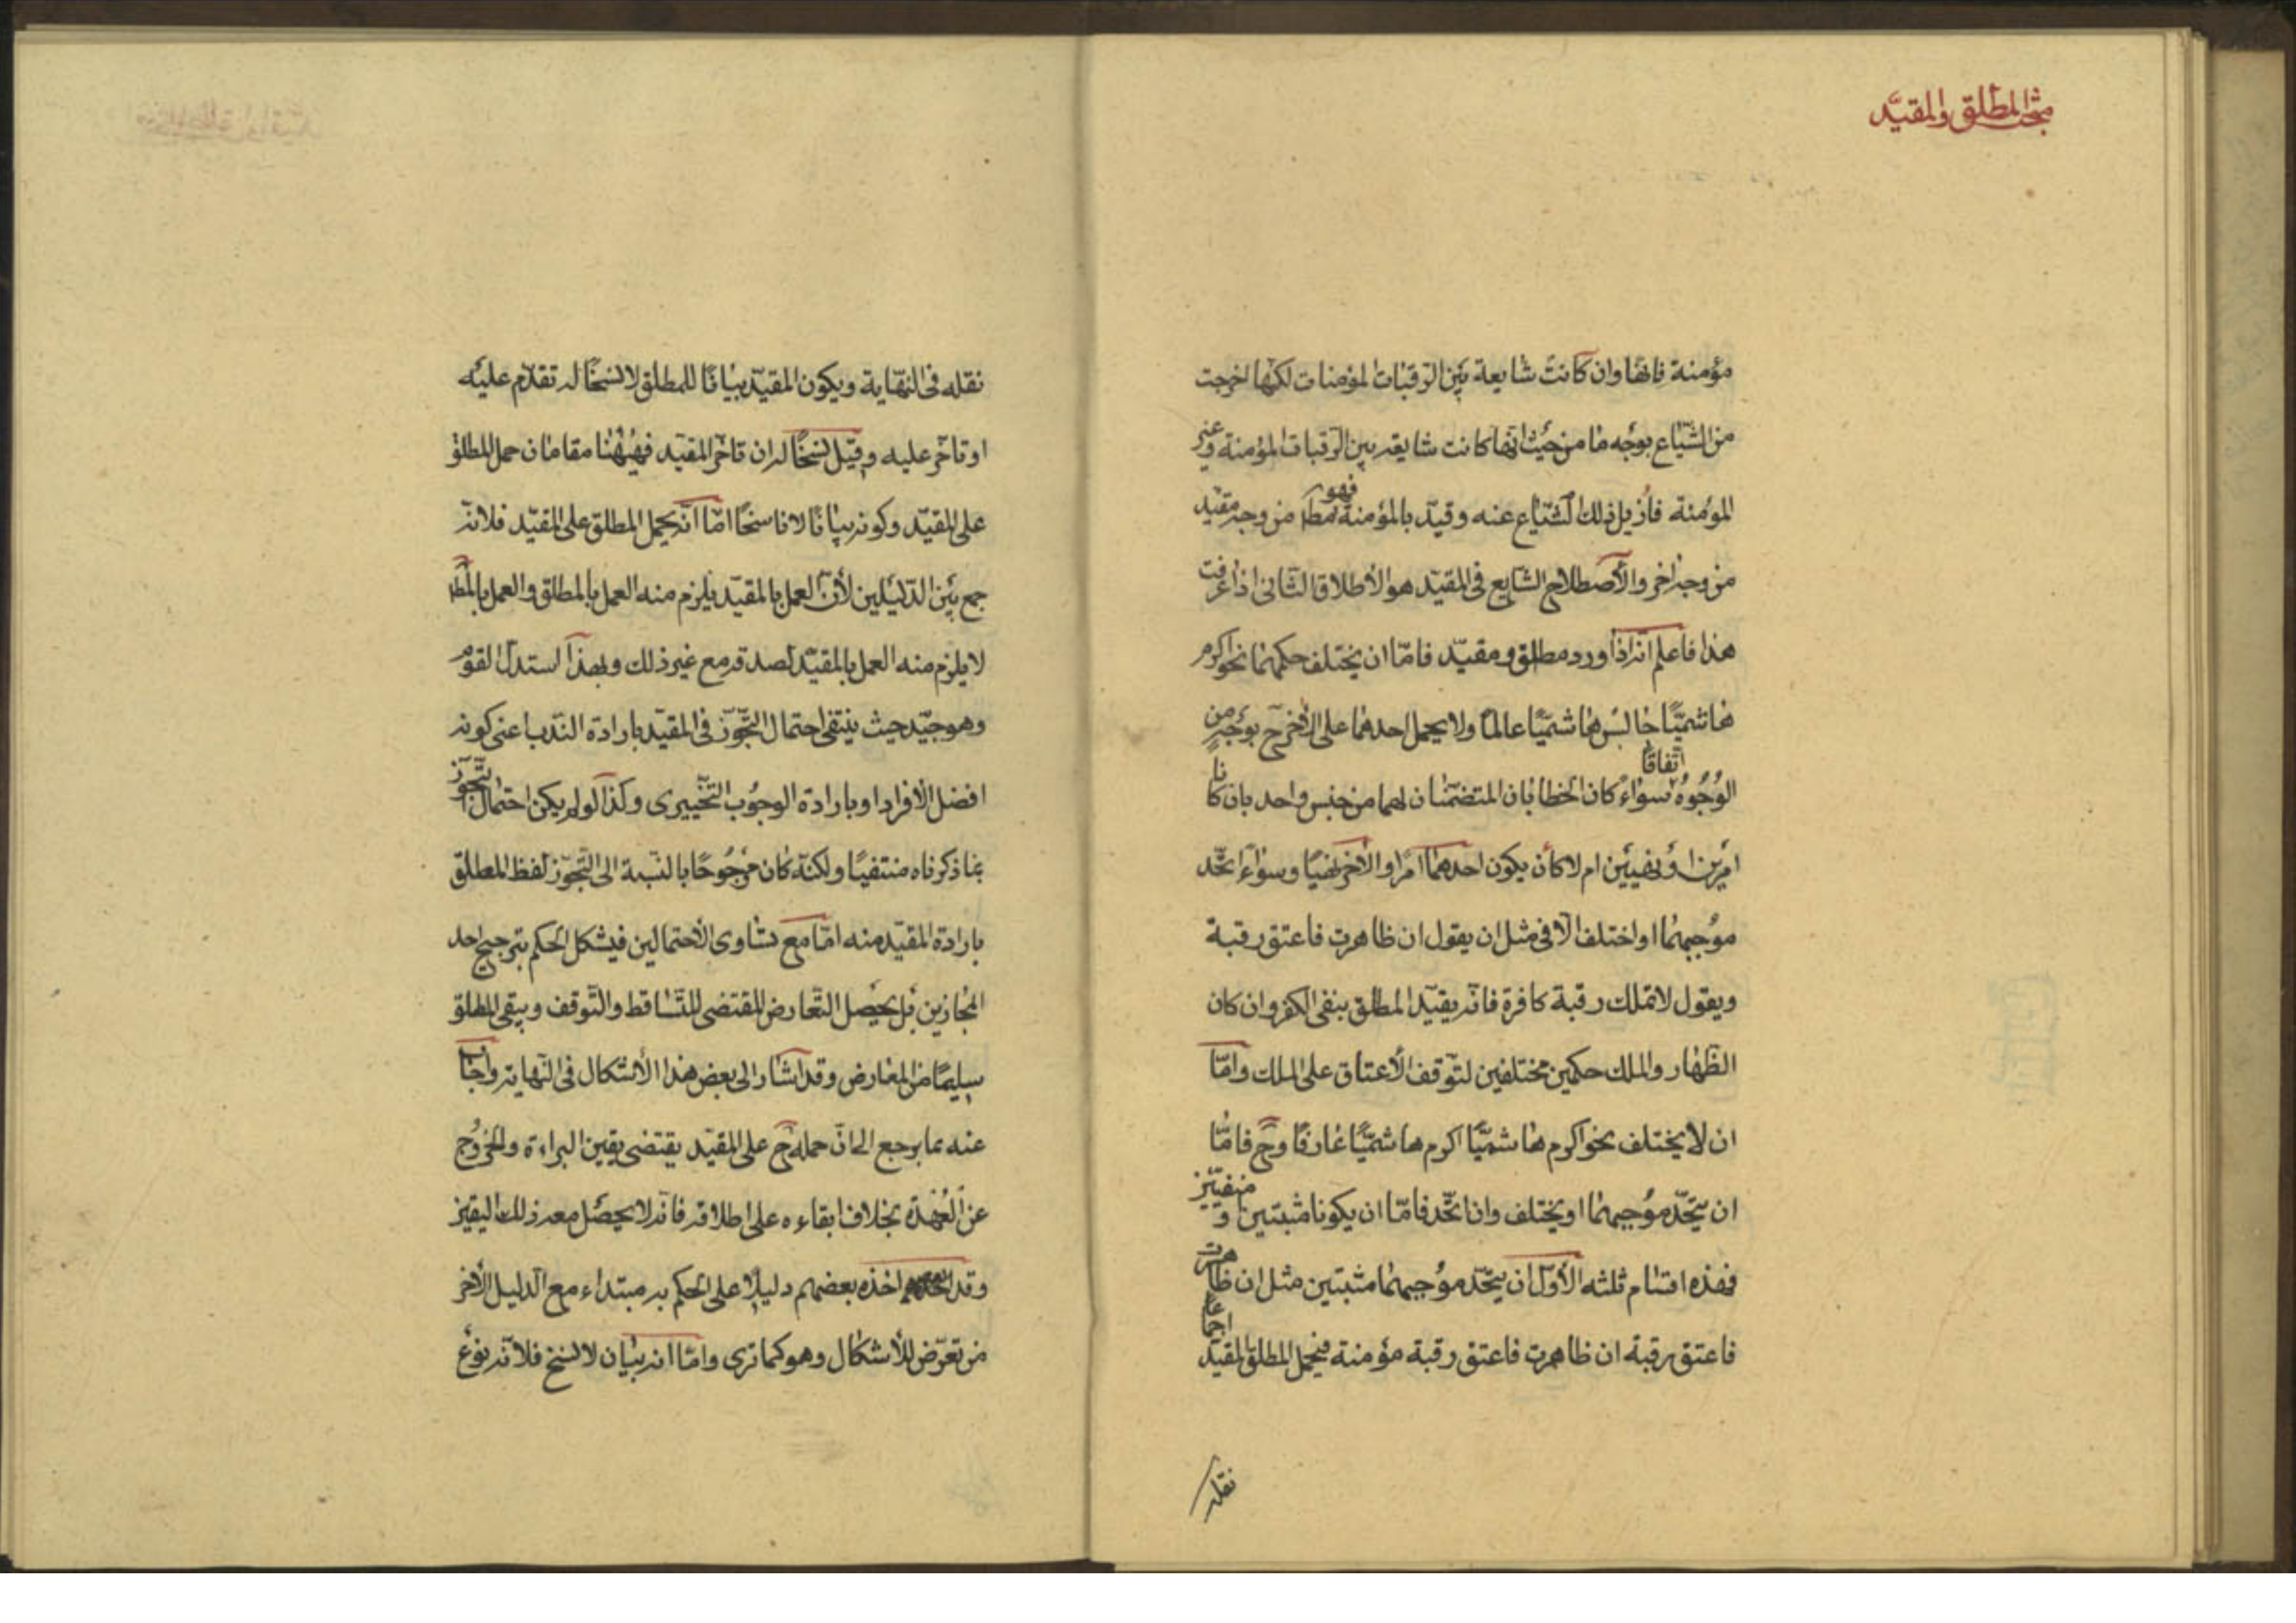 مبحث المطلق والمقيّد
مؤمنة فانها وان كانت شايعة بين الرقبات المؤمنات لكنها اخرجت
من الشياع بوجه ما من حيث انها كانت شايعه بين الرقبات المؤمنة وغير
المؤمنة فازيل ذلك الشياع عنه وقيد بالمؤمنة فهو مط من وجه مقيد
من وجه اخر والاصطلاح الشايع فى المقيد هو الاطلاق الثانى اذا عرفت
هذا فاعلم انه اذا ورد مطلق ومقيد فامّا ان يختلف حكمهما نحو اكرم
هاشميًّا جالس هاشميًّا عالمًا ولا يحمل احدهما على الاخر ح بوجه من
الوجوه اتفاقا سواء كان الخطابان المتضمنان لهما من جنس واحد بان كانا
امرين او نهيين ام لا كأن يكون احدهما امرا والاخر نهيًا وسواء اتحد
موجبهما او اختلف الا فى مثل ان يقول ان ظاهرت فاعتق رقبة
ويقول لا تملك رقبة كافرة فانه يقيد المطلق بنفى الكفر وان كان
الظهار والملك حكمين مختلفين لتوقف الاعتاق على الملك وامّا
ان لا يختلف نحو اكرم هاشميًّا اكرم هاشميًّا عارفًا وح فامّا
ان يتحد موجبهما او يختلف وان اتحد فامّا ان يكونا مثبتين و منفيين
فهذه اقسام ثلثه الاول ان يتحد موجبهما مثبتين مثل ان ظاهرت
فاعتق رقبة ان ظاهرت فاعتق رقبة مؤمنة فيحمل المطلق المقيد اجماعا
نقله
نقله فى النهاية ويكون المقيد بيانًا للمطلق لا نسخًا له تقدم عليه
او تاخر عليه وقيل نسخًا له ان تاخر المقيد فههنا مقامان حمل المطلق
على المقيد وكونه بيانًا لا ناسخًا امّا انه يحمل المطلق على المقيد فلانه
جمع بين الدليلين لأن العمل بالمقيد يلزم منه العمل بالمطلق والعمل بالمط
لا يلزم منه العمل بالمقيد لصدقه مع غير ذلك وبهذا استدل القوم
وهو جيد حيث ينتفى احتمال التجوز فى المقيد بارادة الندب اعنى كونه
افضل الافراد او بارادة الوجوب التخييرى وكذا لو لم يكن احتمال التجوز
بما ذكرناه منتفيًا ولكنه كان مرجوحًا بالنسبة الى التجوز لفظ المطلق
بارادة المقيد منه امّا مع تساوى الاحتمالين فيشكل الحكم بترجيح احد
المجازين بل يحصل التعارض المقتضى للتساقط والتوقف ويبقى المطلق
سليمًا من المعارض وقد اشار الى بعض هذا الاشكال فى النهايه واجاب
عنه بما يرجع الى ان حمله ح على المقيد يقتضى يقين البراءة والخروج
عن العهدة بخلاف ابقاءه على اطلاقه فانه لا يحصل معه ذلك اليقين
وقد اخذه بعضهم دليلا على الحكم به مبتداء مع الدليل الاخر
من تعرض للاشكال وهو كما ترى وامّا انه بيان لا نسخ فلانه نوع